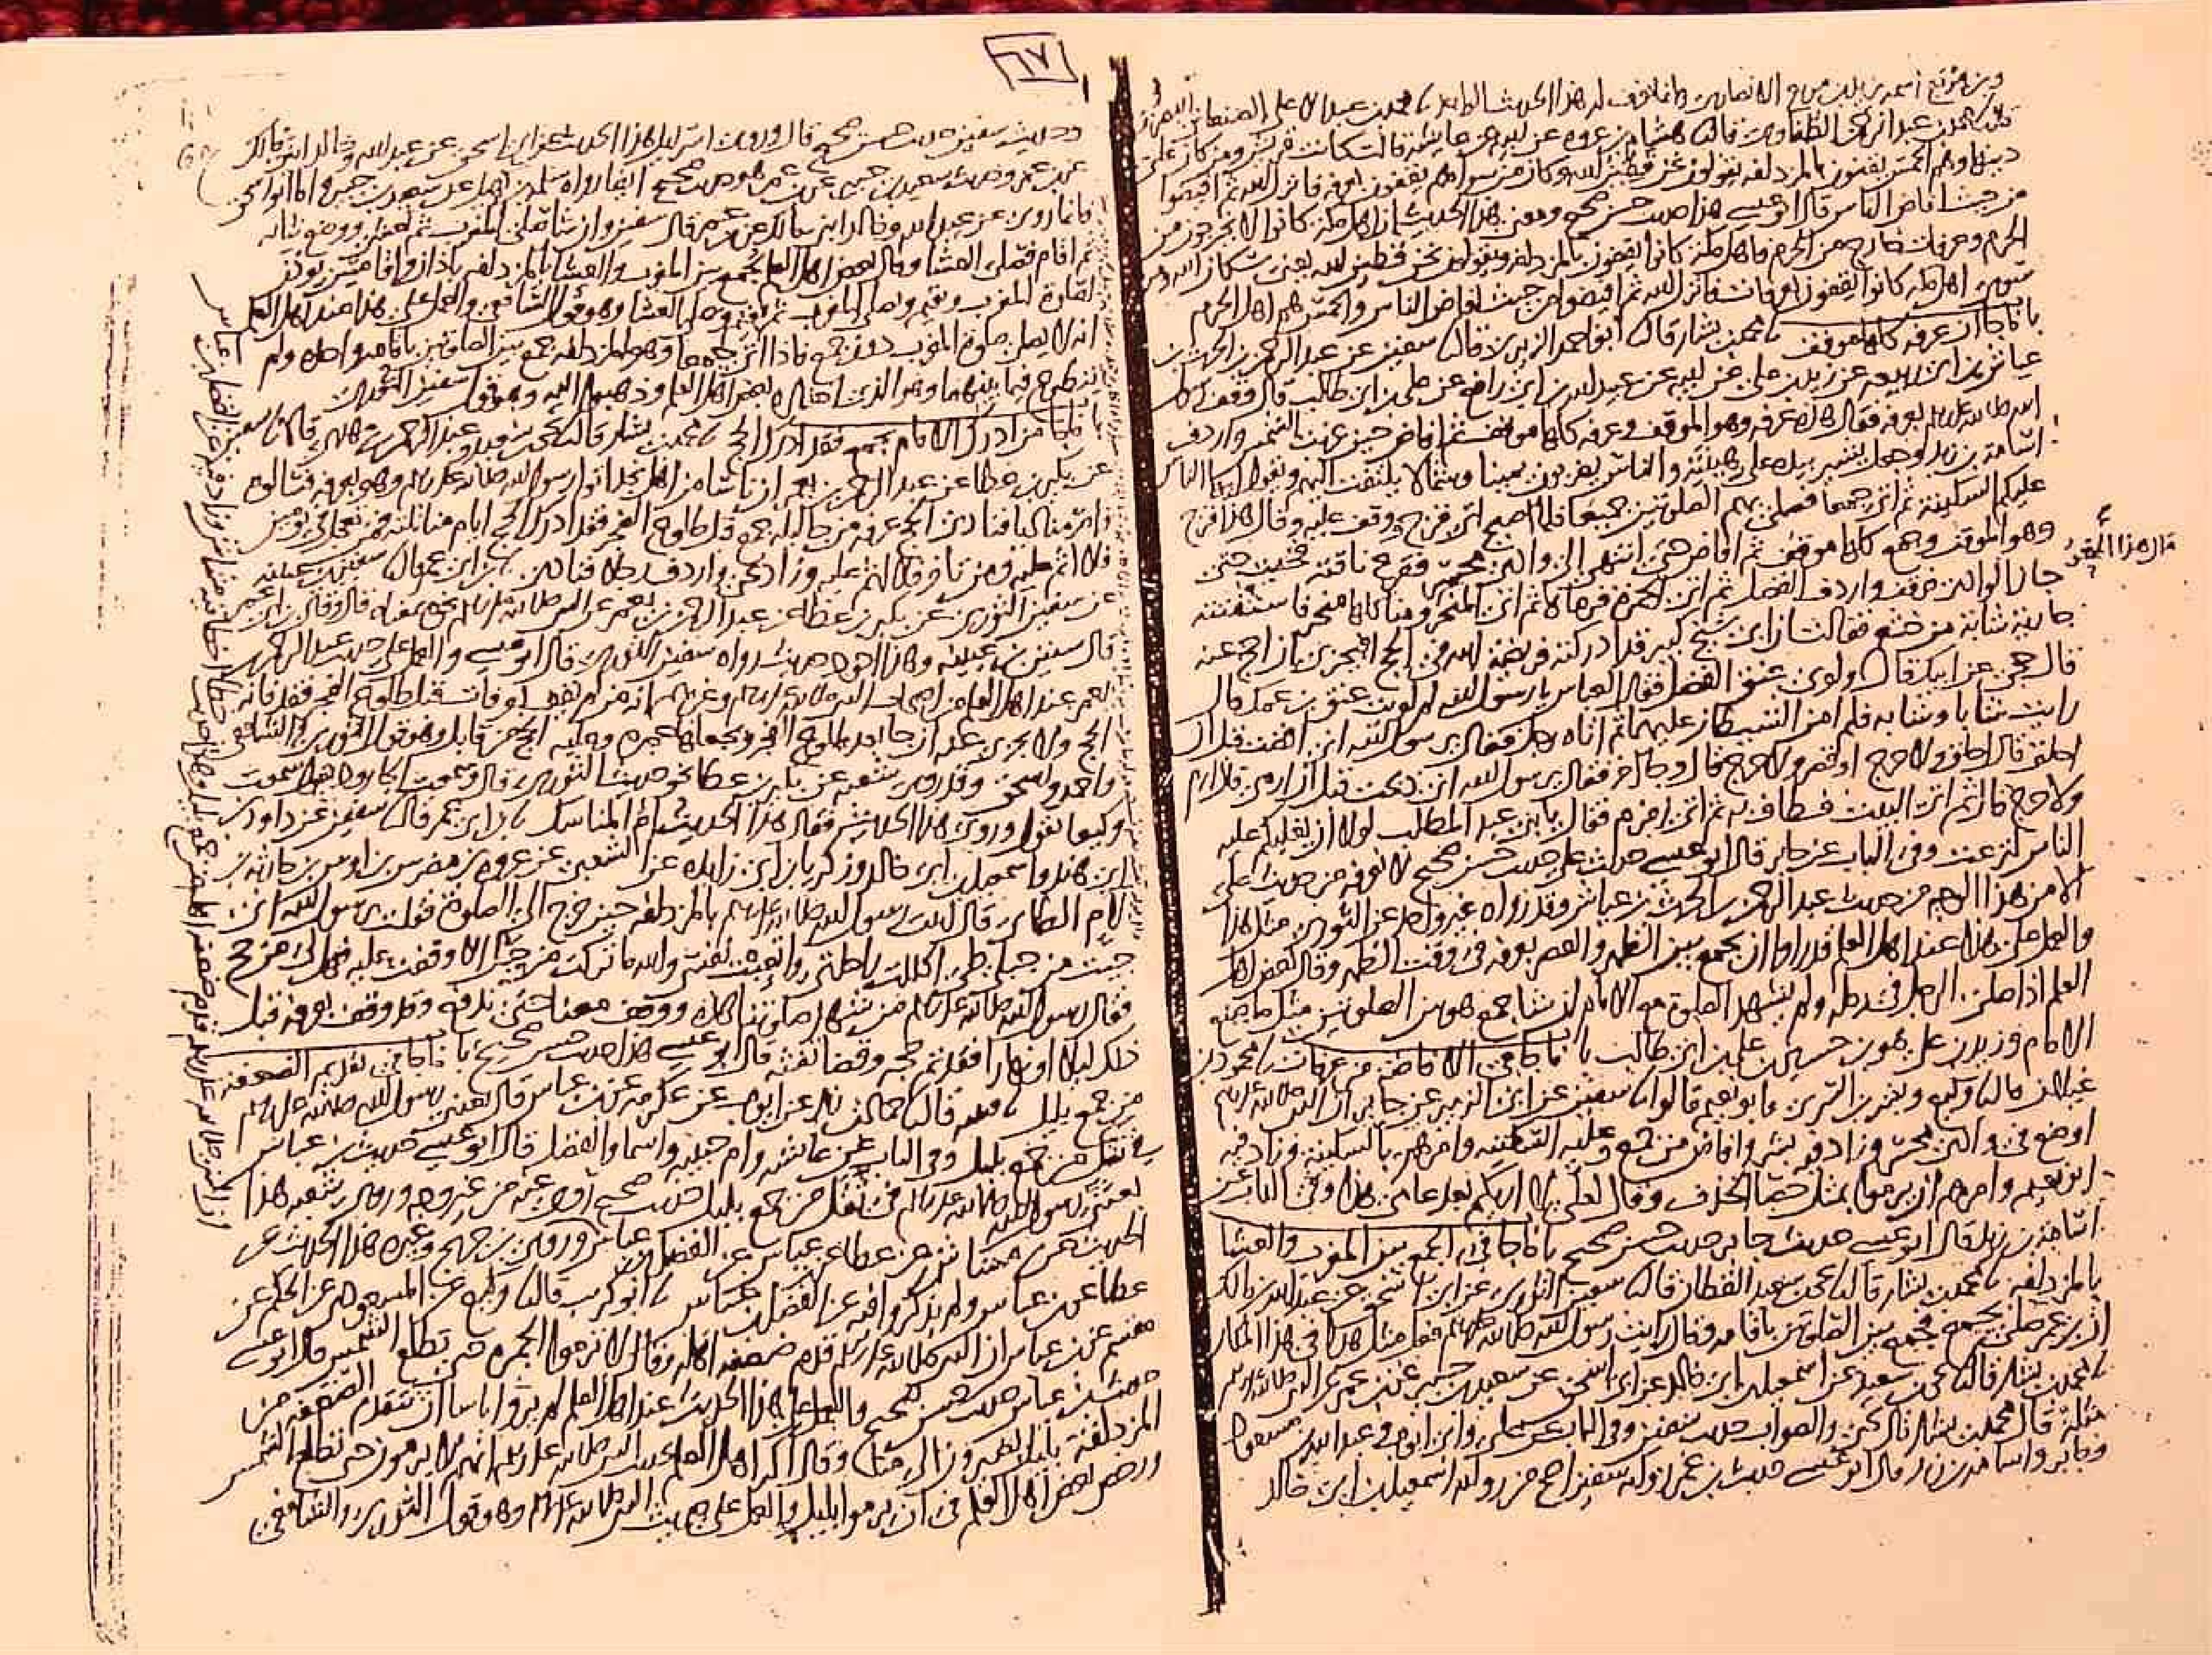 ٦٧
وابن مربع اسمه يزيد بن مربع الانصاري وانما يعرف له هذا الحديث الواحد نا محمد بن عبد الاعلى الصنعاني البصري
نا محمد بن عبد الرحمن الطفاوي قال نا هشام بن عروه عن ابيه عن عايشه قالت كانت قريش ومن كان على
دينها وهم الحمس يقفون بالمزدلفه يقولون نحن قطين الله وكان من سواهم يقفون بعرفه فانزل الله ثم افيضوا
من حيث افاض الناس قال ابو عيسى هذا حديث حسن صحيح ومعنى هذا الحديث ان اهل مكه كانوا لا يخرجون من
الحرم وعرفات خارج من الحرم فاهل مكه كانوا يقفون بالمزدلفه ويقولون نحن قطين الله يعني سكان الله ومن
سوى اهل مكه كانوا يقفون بعرفات فانزل الله ثم افيضوا من حيث افاض الناس والحمس هم اهل الحرم
باب ما جا ان عرفه كلها موقف نا محمد بن بشار قال نا ابو احمد الزبيري قال نا سفين عن عبد الرحمن بن الحرث بن
عياش بن ابي ربيعه عن زيد بن علي عن ابيه عن عبيد الله بن ابي رافع عن علي بن ابي طالب قال وقف رسول
الله صلى الله عليه وسلم بعرفه فقال هذه عرفه وهو الموقف وعرفه كلها موقف ثم افاض حين غربت الشمس واردف
اسامة بن زيد وجعل يشير بيده على هينته والناس يضربون يمينا وشمالا يلتفت اليهم ويقول ايها الناس
عليكم السكينة ثم اتى جمعا فصلى بهم الصلوتين جميعا فلما اصبح اتى قزح ووقف عليه وقال هذا قزح
وهو الموقف وجمع كلها موقف ثم افاض حتى انتهى الى وادي محسر فقرع ناقته فخبت حتى
جاز الوادي فوقف واردف الفضل ثم اتى الجمرة فرماها ثم اتى المنحر ومنا كلها منحر فاستفتته
جارية شابة من خثعم فقالت ان ابي شيخ كبير قد ادركته فريضة الله في الحج افيجزي ان احج عنه
قال حجي عن ابيك قال ولوى عنق الفضل فقال العباس يا رسول الله لم لويت عنق بن عمك قال
رايت شابا وشابه فلم امن الشيطان عليهما ثم اتاه رجل فقال يرسول الله اني افضت قبل ان
احلق قال احلق ولا حرج او قصر ولا حرج قال وجا اخر فقال يرسول الله اني ذبحت قبل ان ارمي قال ارم
ولا حرج قال ثم اتى البيت فطاف به ثم اتى زمزم فقال يا بني عبد المطلب لولا ان يغلبكم عليه
الناس لنزعت وفي الباب عن جابر قال ابو عيسى حديث علي حديث حسن صحيح لا نعرفه من حديث علي
الا من هذا الوجه من حديث عبد الرحمن بن الحرث بن عياش وقد رواه غير واحد عن الثوري مثل هذا
والعمل على هذا عند اهل العلم قد راوا ان يجمع بين الظهر والعصر بعرفه في وقت الظهر وقال بعض اهل
العلم اذا صلى الرجل في رحله ولم يشهد الصلوة مع الامام ان شا جمع هو بين الصلوتين مثل ما صنع
الامام وزيد بن علي هو بن حسين بن علي بن ابي طالب باب ما جا في الافاضة من عرفات نا محمود بن
غيلان قال نا وكيع وبشر بن السري وابو نعيم قالوا نا سفين عن ابي الزبير عن جابر ان النبي صلى الله عليه وسلم
اوضع في وادي محسر وزاد فيه بشر وافاض من جمع وعليه السكينه وامرهم بالسكينه وزاد فيه
ابو نعيم وامرهم ان يرموا بمثل حصا الخذف وقال لعلي لا اراكم بعد عامي هذا وفي الباب عن
اسامة بن زيد قال ابو عيسى حديث جابر حديث حسن صحيح باب ما جا في الجمع بين المغرب والعشا
بالمزدلفه نا محمد بن بشار قال نا يحيى بن سعيد القطان قال نا سفين الثوري عن ابي اسحق عن عبد الله بن مالك
ان بن عمر صلى بجمع فجمع بين الصلوتين باقامه وقال رايت رسول الله صلى الله عليه وسلم فعل مثل هذا في هذا المكان
نا محمد بن بشار قال نا يحيى بن سعيد عن اسمعيل بن ابي خالد عن ابي اسحق عن سعيد بن جبير عن بن عمر عن النبي صلى الله عليه وسلم
مثله قال محمد بن بشار قال يحيى والصواب حديث سفين وفي الباب عن علي وابي ايوب وعبد الله بن مسعود
وجابر واسامة بن زيد قال ابو عيسى حديث بن عمر رواية سفين اصح من رواية اسمعيل بن ابي خالد
وحديث سفين حديث حسن صحيح قال وروى اسرائيل هذا الحديث عن ابي اسحق عن عبد الله وخالد ابني مالك
عن بن عمر وحديث سعيد بن جبير عن بن عمر هو حديث صحيح ايضا رواه سلمة بن كهيل عن سعيد بن جبير واما ابو اسحق
فانما روى عن عبد الله وخالد ابني مالك عن بن عمر قال سفين وان شا صلى المغرب ثم تعشى ووضع ثيابه
ثم اقام فصلى العشا وقال بعض اهل العلم يجمع بين المغرب والعشا بالمزدلفه باذان واقامتين يوذن
لصلاة المغرب ويقيم ويصلي المغرب ثم يقيم ويصلي العشا وهو قول الشافعي والعمل على هذا عند اهل العلم
انه لا يصلى صلوة المغرب دون جمع فاذا اتى جمعا وهو المزدلفه جمع بين الصلوتين باقامه واحده ولم
يتطوع فيما بينهما وهو الذي اختاره بعض اهل العلم وذهبوا اليه وهو قول سفين الثوري
باب ما جا من ادرك الامام بجمع فقد ادرك الحج نا محمد بن بشار قال نا يحيى بن سعيد وعبد الرحمن بن مهدي قالا نا سفين
عن بكير بن عطا عن عبد الرحمن بن يعمر ان ناسا من اهل نجد اتوا رسول الله صلى الله عليه وسلم وهو بعرفه فسالوه
وامر مناديا فنادى الحج عرفه من جا ليله جمع قبل طلوع الفجر فقد ادرك الحج ايام منا ثلثه فمن تعجل في يومين
فلا اثم عليه ومن تاخر فلا اثم عليه وزاد يحيى واردف رجلا فنادى نا بن ابي عمر قال نا سفين بن عيينه
عن سفين الثوري عن بكير بن عطا عن عبد الرحمن بن يعمر عن النبي صلى الله عليه وسلم نحوه بمعناه قال وقال بن ابي عمر
قال سفين بن عيينه وهذا اجود حديث رواه سفين الثوري قال ابو عيسى والعمل على حديث عبد الرحمن بن
يعمر عند اهل العلم من اصحاب النبي صلى الله عليه وسلم وغيرهم انه من لم يقف بعرفات قبل طلوع الفجر فقد فاته
الحج ولا يجزي عنه ان جا بعد طلوع الفجر ويجعلها عمره وعليه الحج من قابل وهو قول الثوري والشافعي
واحمد واسحق وقد روى شعبه عن بكير بن عطا نحو حديث الثوري قال وسمعت الجارود يقول سمعت
وكيعا يقول وروى هذا الحديث فقال هذا الحديث ام المناسك نا بن ابي عمر قال نا سفين عن داود بن
ابي هند واسمعيل بن ابي خالد وزكريا بن ابي زايده عن الشعبي عن عروه بن مضرس بن اوس بن حارثه بن
لام الطائي قال اتيت رسول الله صلى الله عليه وسلم بالمزدلفه حين خرج الى الصلوة فقلت يرسول الله اني
جيت من جبلي طي اكللت راحلتي واتعبت نفسي والله ما تركت من جبل الا وقفت عليه فهل لي من حج
فقال رسول الله صلى الله عليه وسلم من شهد صلوتنا هذه ووقف معنا حتى ندفع وقد وقف بعرفه قبل
ذلك ليلا او نهارا فقد تم حجه وقضا تفثه قال ابو عيسى هذا حديث حسن صحيح باب ما جا في تقديم الضعفه
من جمع بليل نا قتيبه قال نا حماد بن زيد عن ايوب عن عكرمه عن بن عباس قال بعثني رسول الله صلى الله عليه وسلم
في ثقل من جمع بليل وفي الباب عن عايشه وام حبيبه واسما والفضل قال ابو عيسى حديث بن عباس
بعثني رسول الله صلى الله عليه وسلم في ثقل من جمع بليل حديث صحيح روي عنه من غير وجه وروى شعبه هذا
الحديث عن مشاش عن عطا عن بن عباس عن الفضل بن عباس وروى بن جريج وغيره هذا الحديث عن
عطا عن بن عباس ولم يذكروا فيه عن الفضل بن عباس نا ابو كريب قال نا وكيع عن المسعودي عن الحكم عن
مقسم عن بن عباس ان النبي صلى الله عليه وسلم قدم ضعفه اهله وقال لا ترموا الجمره حتى تطلع الشمس قال ابو عيسى
حديث بن عباس حديث حسن صحيح والعمل على هذا الحديث عند اهل العلم لم يروا باسا ان يتقدم الضعفه من
المزدلفه بليل يصيرون الى منا وقال اكثر اهل العلم بحديث النبي صلى الله عليه وسلم انهم لا يرمون حتى تطلع الشمس
ورخص بعض اهل العلم في ان يرموا بليل والعمل على حديث النبي صلى الله عليه وسلم وهو قول الثوري والشافعي